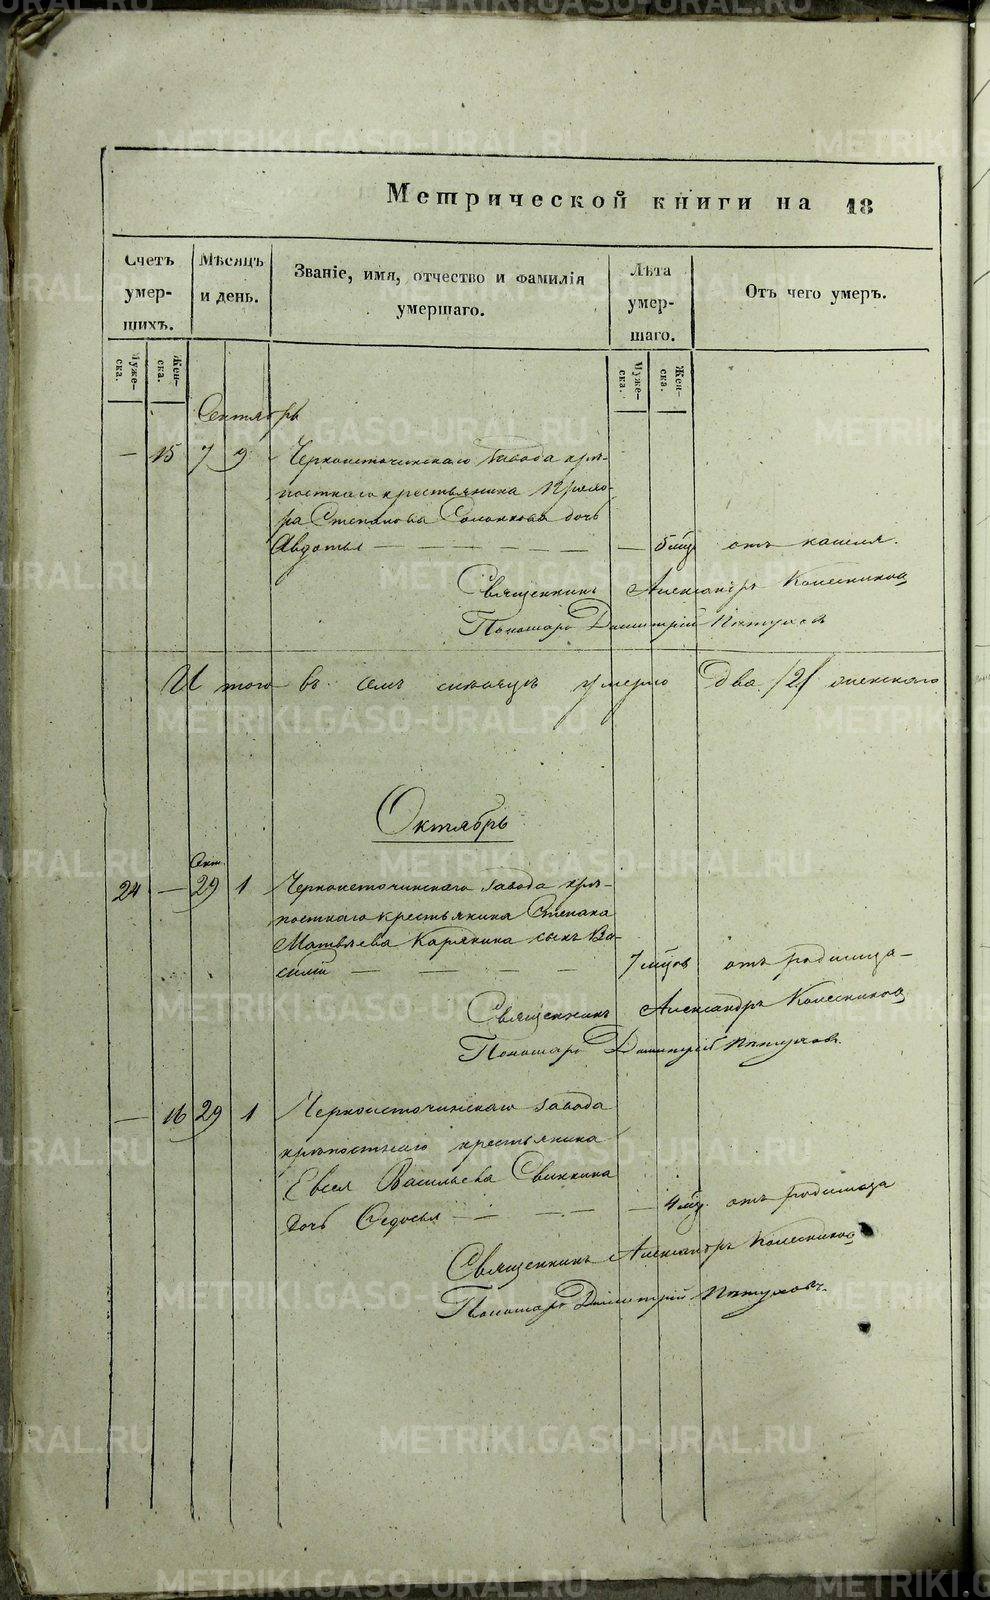 Метрической книги на 18
Счетъ умер- шихъ.
Мѣсяцъ и день.
Званіе, имя, отчество и фамилія умершаго.
Лѣта умер- шаго.
Отъ чего умеръ.
Муже- ска.
Жен- ска.
Муже- ска.
Жен- ска.
Сентябрь
— 15 7 9 Черноисточинскаго завода крѣ-
постнаго крестьянина
ра Степанова дочь
Авдотья — — — — — — 5 мц отъ кашля.
Священникъ Александръ Колесниковъ
Пономарь Димитрій Пѣтуховъ
И того въ семъ мѣсяцѣ умерло два /2/ женскаго
Октябрь
Сент.
24 — 29 1 Черноисточинскаго завода крѣ-
постнаго крестьянина Степана
Матвѣева Карякина сынъ Ва-
силій — — — — 7 мцовъ отъ родимца —
Священникъ Александръ Колесниковъ
Пономарь Димитрій Пѣтуховъ.
— 16 29 1 Черноисточинскаго завода
крѣпостнаго крестьянина
Евсея Васильева Свинкина
дочь Федосья — — — — — 4 мц. отъ родимца
Священникъ Александръ Колесниковъ
Пономарь Димитрій Пѣтуховъ.
METRIKI.GASO-URAL.RU